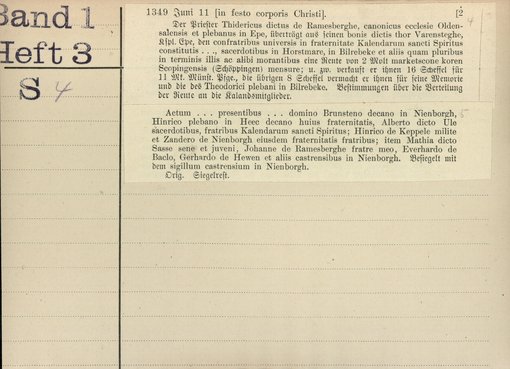 Band 1
Heft 3
S 4
1349 Juni 11 [in festo corporis Christi]. [2
4
Der Priester Thidericus dictus de Ramesberghe, canonicus ecclesie Olden-
salensis et plebanus in Epe, überträgt aus seinen bonis dictis thor Varensteghe,
Kspl. Epe, den confratribus universis in fraternitate Kalendarum sancti Spiritus
constitutis . . ., sacerdotibus in Horstmare, in Bilrebeke et aliis quam pluribus
in terminis illis ac alibi morantibus eine Rente von 2 Molt marketscone koren
Scopingensis (Schöppingen) mensure; u. zw. verkauft er ihnen 16 Scheffel für
11 Mk. Münst. Pfge., die übrigen 8 Scheffel vermacht er ihnen für seine Memorie
und die des Theodorici plebani in Bilrebeke. Bestimmungen über die Verteilung
der Rente an die Kalandsmitglieder.
Actum . . . presentibus . . . domino Brunsteno decano in Nienborgh, 5
Hinrico plebano in Heec decano huius fraternitatis, Alberto dicto Ule
sacerdotibus, fratribus Kalendarum sancti Spiritus; Hinrico de Keppele milite
et Zandero de Nienborgh eiusdem fraternitatis fratribus; item Mathia dicto
Sasse sene et juveni, Johanne de Ramesberghe fratre meo, Everhardo de
Baclo, Gerhardo de Hewen et aliis castrensibus in Nienborgh. Besiegelt mit
dem sigillum castrensium in Nienborgh.
Orig. Siegelrest.